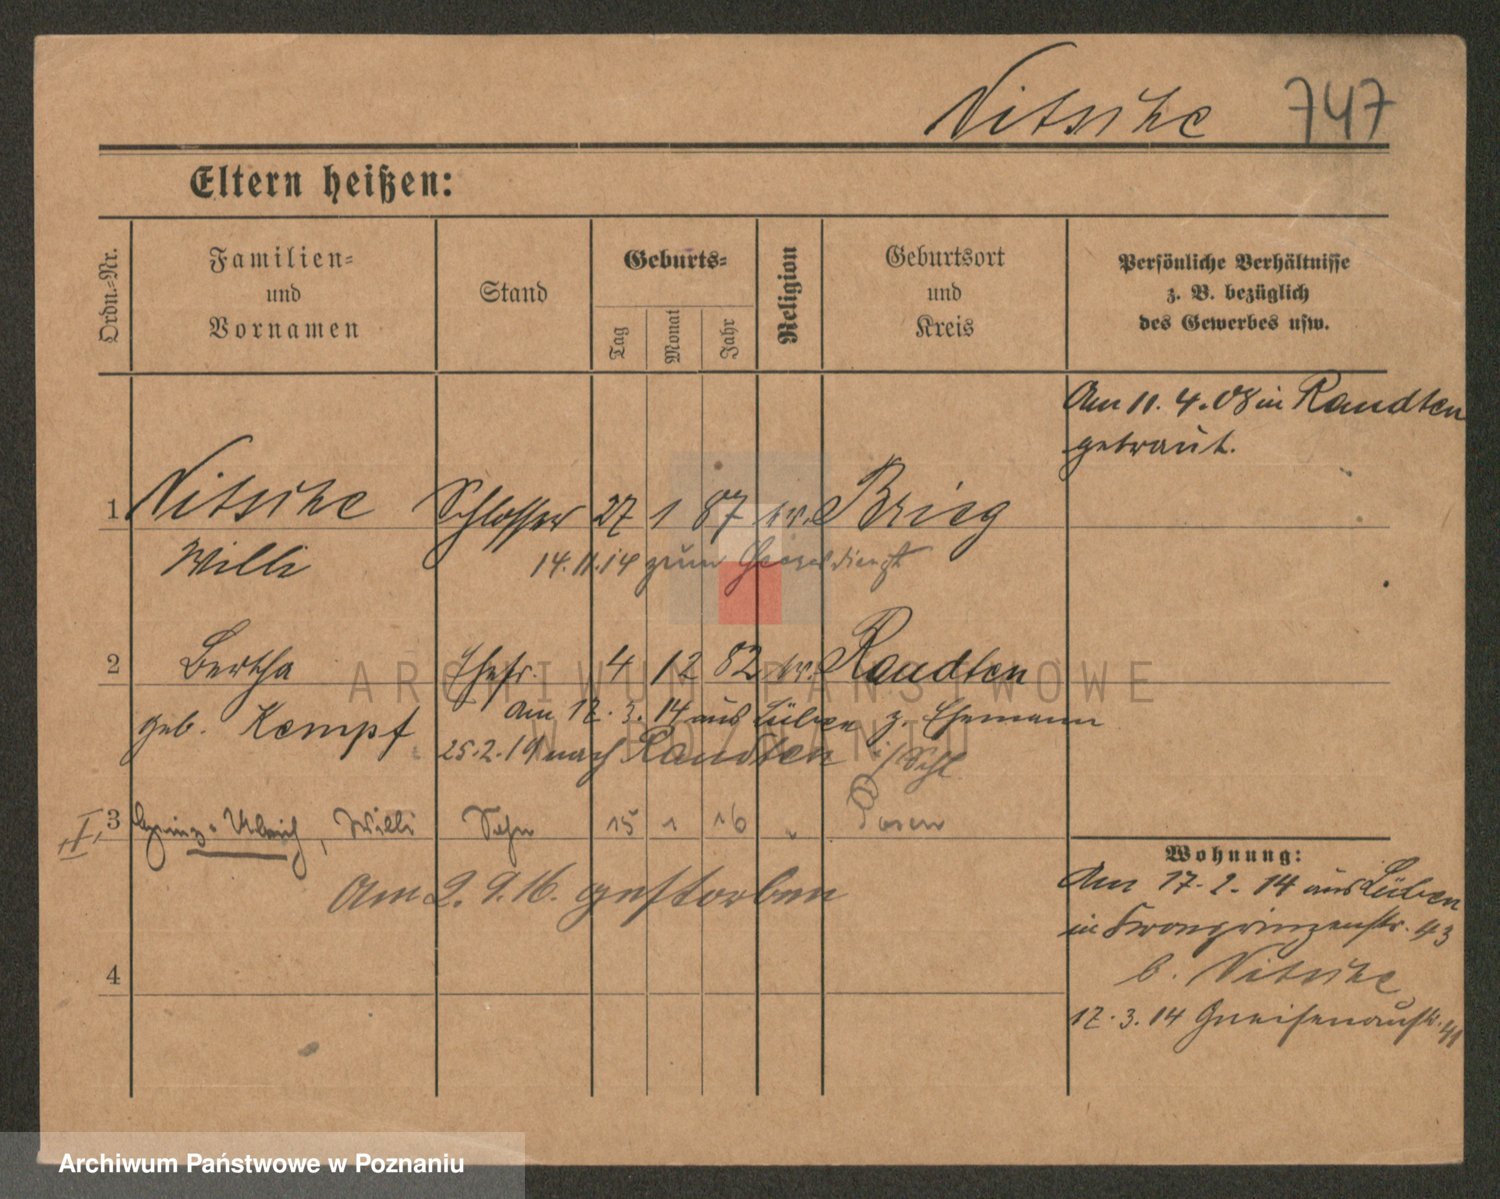 Nitsche 747
Eltern heißen:
Ordn.-Nr.
Familien-
und
Vornamen
Stand
Geburts-
Tag
Monat
Jahr
Religion
Geburtsort
und
Kreis
Persönliche Verhältnisse
z. B. bezüglich
des Gewerbes usw.
Am 11. 4. 08 in Raudten
getraut.
1 Nitsche Schlosser 27 1 87 ev. Brieg
Willi
14.11.14 zum Heeresdienst
2 Bertha Ehefr. 4 12 82 ev. Raudten
geb. Kempf
am 17. 3. 14 aus Lüben z. Ehemann
25.2.19 nach Raudten
i/Schl.
I 3 Heinz-Ulrich, Willi Sohn 15 1 16 " Posen
Am 2. 9. 16. gestorben
4
Wohnung:
Am 17. 2. 14 aus Lüben
in Kronprinzenstr. 93
b. Nitsche
17. 3. 14 Gneisenaustr. 41
ARCHIWUM PAŃSTWOWE
W POZNANIU
Archiwum Państwowe w Poznaniu